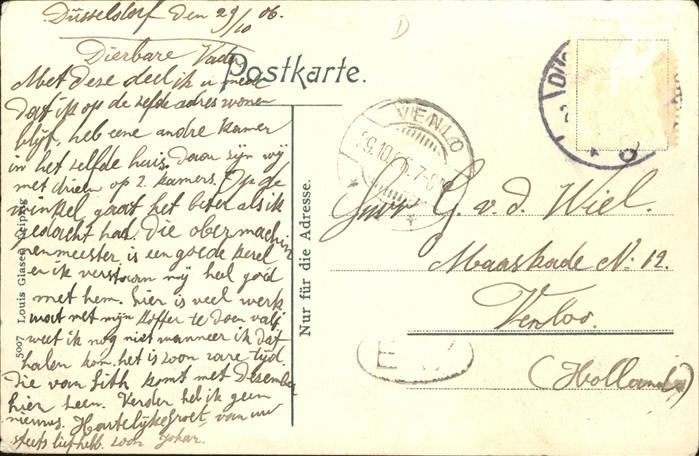 Düsseldorf den 29/10 06.
Dierbare Vader
Met deze deel ik u mede
dat ik op de zelfde adres wonen
blijf, heb eene andre kamer
in het zelfde huis. Daar zijn wij
met drieën op 2. kamers. Op de
winkel gaat het beter als ik
gedacht had. Die obermachin
nenmeister is een goede kerel
en ik verstaan mij heel goed
met hem. hier is veel werk
wat met mijn koffer te doen valt
weet ik nog niet wanneer ik dat
halen kom. het is zoon rare tijd
Die van Lith komt met Dezember
hier heen. Verder heb ik geen
nieuws. Hartelijke groet, van uw
steets liefhebb. zoon Johan.
Postkarte.
Nur für die Adresse.
5007 Louis Glaser Leipzig
VENLO
29.10.06.7-8
G. v. d. Wiel.
Maaskade No. 12.
Venloo.
(Holland)